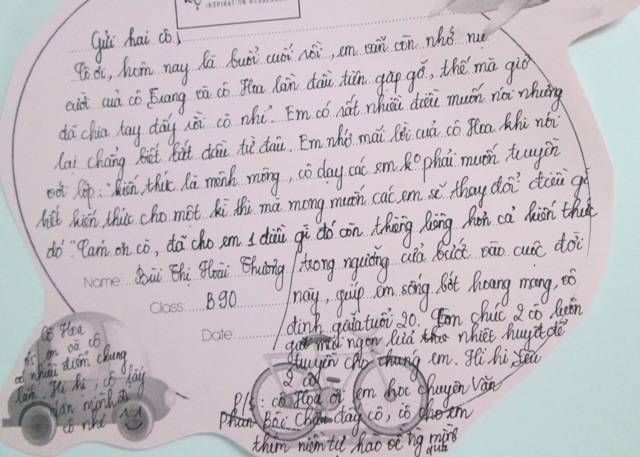 INSPIRATION MESSENGER
Gửi hai cô,
Cô ơi, hôm nay là buổi cuối rồi, em vẫn còn nhớ nụ
cười của cô Trang và cô Hoa lần đầu tiên gặp gỡ, thế mà giờ
đã chia tay đấy rồi cô nhỉ. Em có rất nhiều điều muốn nói nhưng
lại chẳng biết bắt đầu từ đâu. Em nhớ mãi lời của cô Hoa khi nói
với lớp: "kiến thức là mênh mông, cô dạy các em ko phải muốn truyền
hết kiến thức cho một kì thi mà mong muốn các em sẽ thay đổi điều gì
đó". Cảm ơn cô, đã cho em 1 điều gì đó còn thiêng liêng hơn cả kiến thức
Name: Bùi Thị Hoài Thương
trong ngưỡng cửa bước vào cuộc đời
Class: B90
này, giúp em sống bớt hoang mang, vô
Date:
định giữa tuổi 20. Em chúc 2 cô luôn
giữ mãi ngọn lửa nhiệt huyết để
truyền cho chúng em. Hi hi Yêu
2 cô
P/s: cô Hoa ơi em học chuyên Văn
Phan Bội Châu đây cô, cô cho em
thêm niềm tự hào về ng mình
quá
Cô Hoa
ơi em và cô
có nhiều điểm chung
lắm. Hi hi, cô lấy
dân mình đi
cô nhé